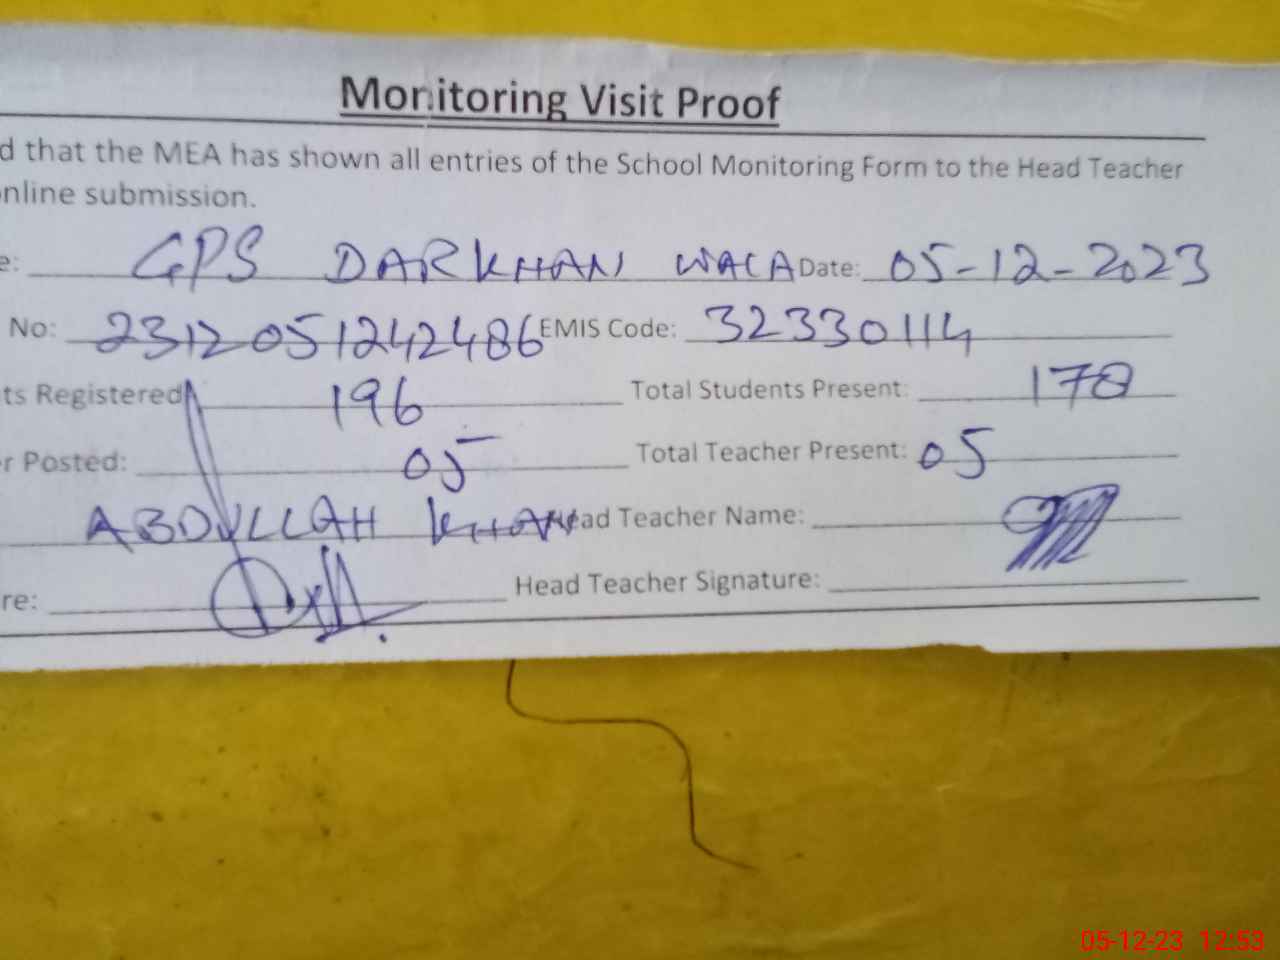 Monitoring Visit Proof
d that the MEA has shown all entries of the School Monitoring Form to the Head Teacher
nline submission.
e: GPS DARKHAN WALA Date: 05-12-2023
No: 2312051242486 EMIS Code: 32330114
ts Registered 196 Total Students Present: 178
r Posted: 05 Total Teacher Present: 05
ABDULLAH KHAN ead Teacher Name:
re: Head Teacher Signature:
05-12-23 12:53